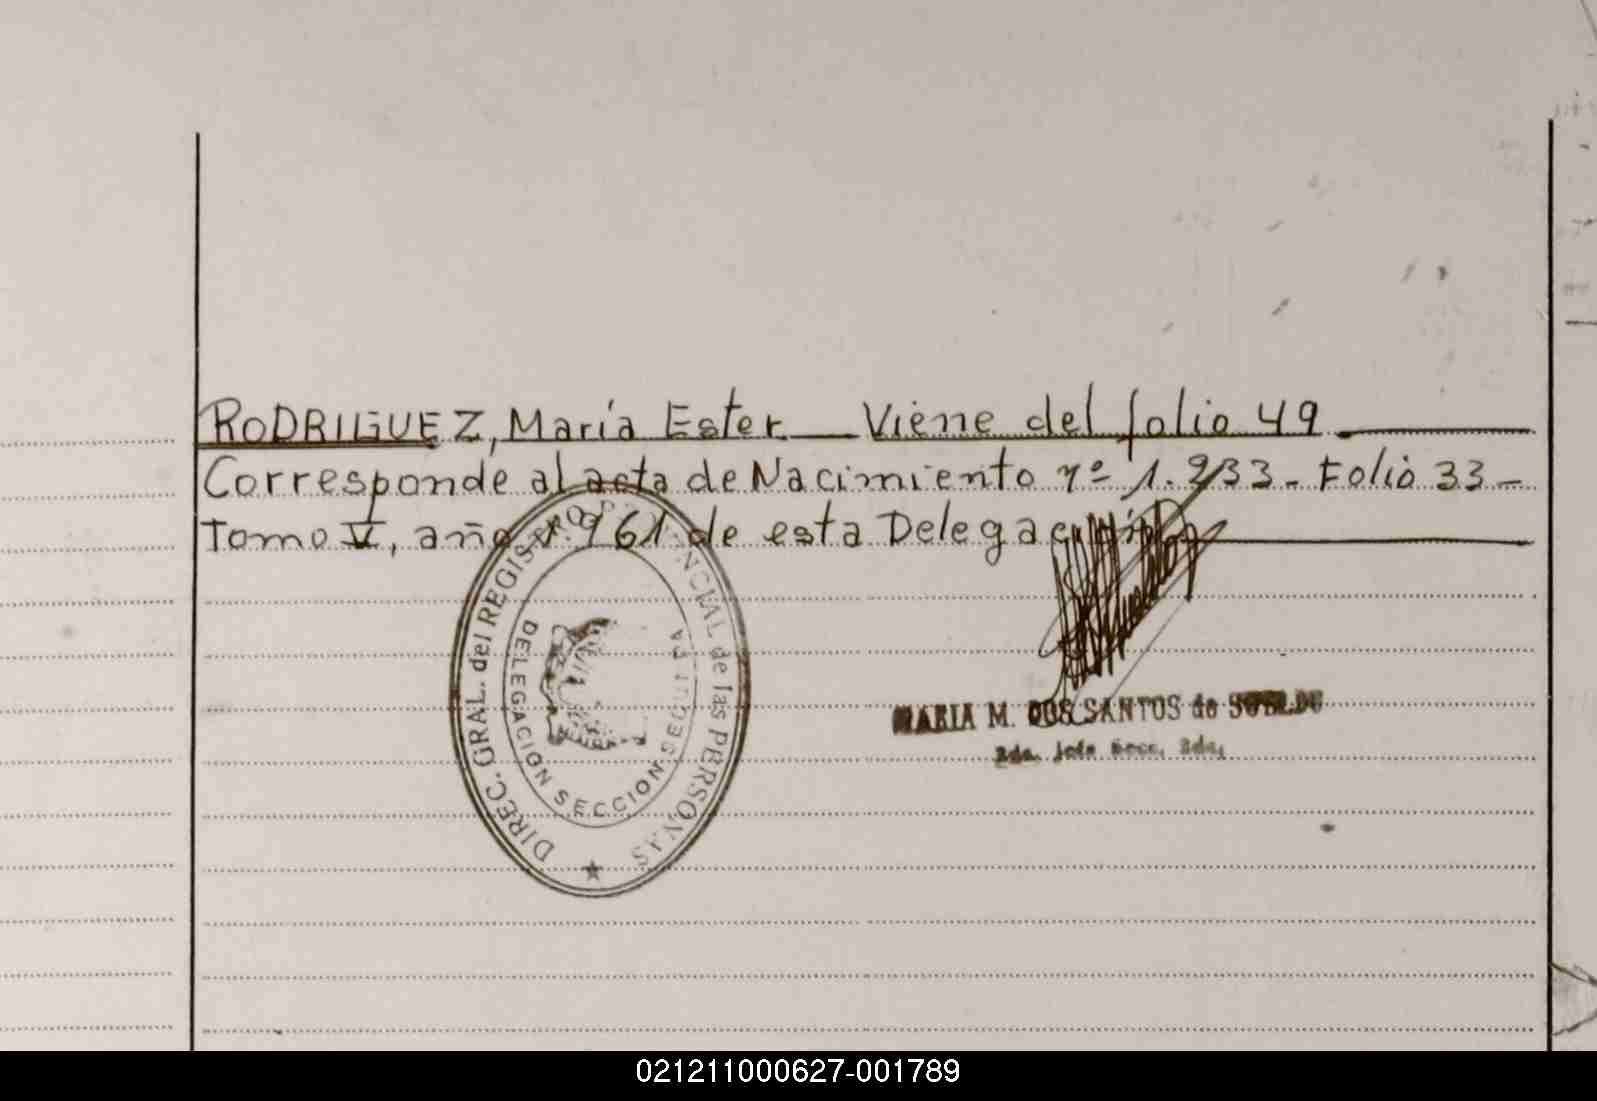 RODRIGUEZ, María Ester — Viene del folio 49 —
Corresponde al acta de Nacimiento nº 1.933 - Folio 33 -
Tomo V, año 1.961 de esta Delegación
DIREC. GRAL. del REGISTRO PROVINCIAL de las PERSONAS
DELEGACION SECCION SEGUNDA
MARIA M. DOS SANTOS de
021211000627-001789